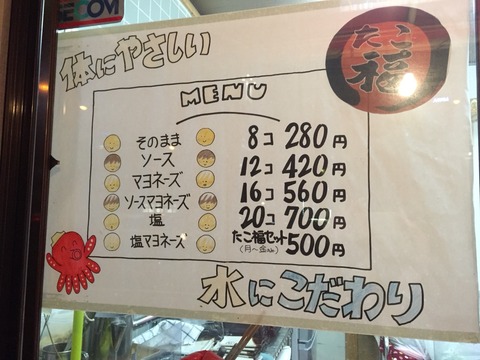 SECOM
体にやさしい
たこ福
MENU
そのまま 8コ 280円
ソース 12コ 420円
マヨネーズ 16コ 560円
ソースマヨネーズ 20コ 700円
塩 たこ福セット 500円
塩マヨネーズ (月〜金)
水にこだわり